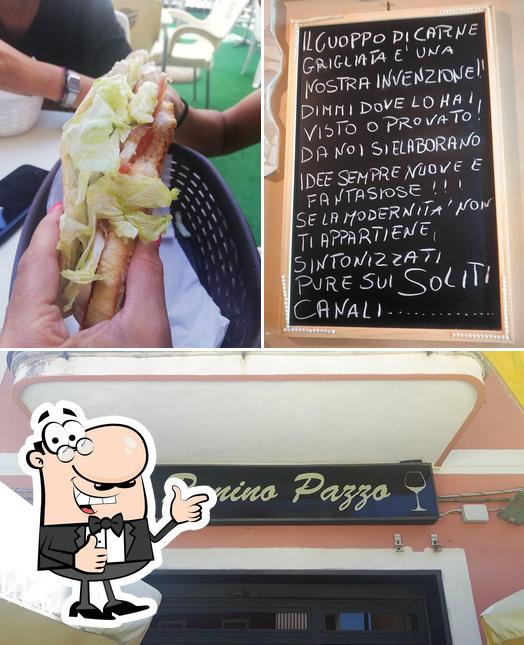 IL CUOPPO DI CARNE
GRIGLIATA E' UNA
NOSTRA INVENZIONE!!
DIMMI DOVE LO HAI
VISTO O PROVATO!
DA NOI SI ELABORANO
IDEE SEMPRE NUOVE E
FANTASIOSE !!!
SE LA MODERNITA' NON
TI APPARTIENE,
SINTONIZZATI
PURE SUI SOLITI
CANALI..............
Panino Pazzo